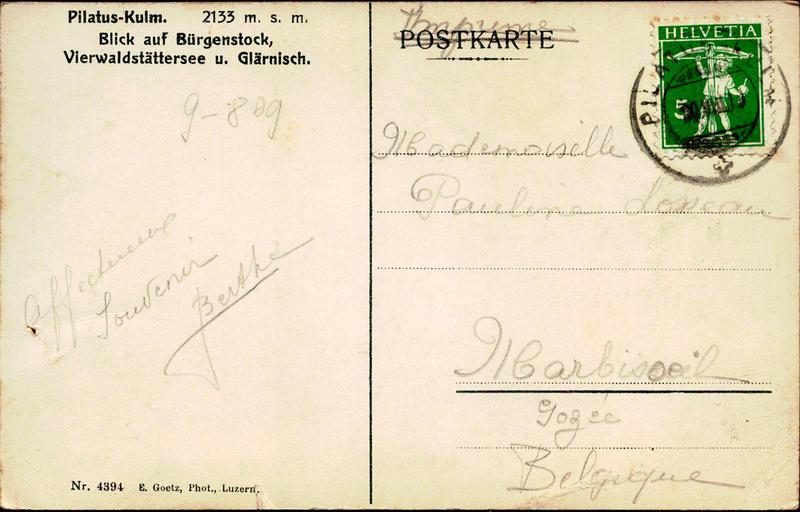 Pilatus-Kulm. 2133 m. s. m.
Blick auf Bürgenstock,
Vierwaldstättersee u. Glärnisch.
9-8 09
Affectueux
Souvenir
Berthe
Nr. 4394 E. Goetz, Phot., Luzern.
Imprimé
POSTKARTE
HELVETIA
5
PILATUS-KULM
Mademoiselle
Pauline
Marbisœil
Gozée
Belgique